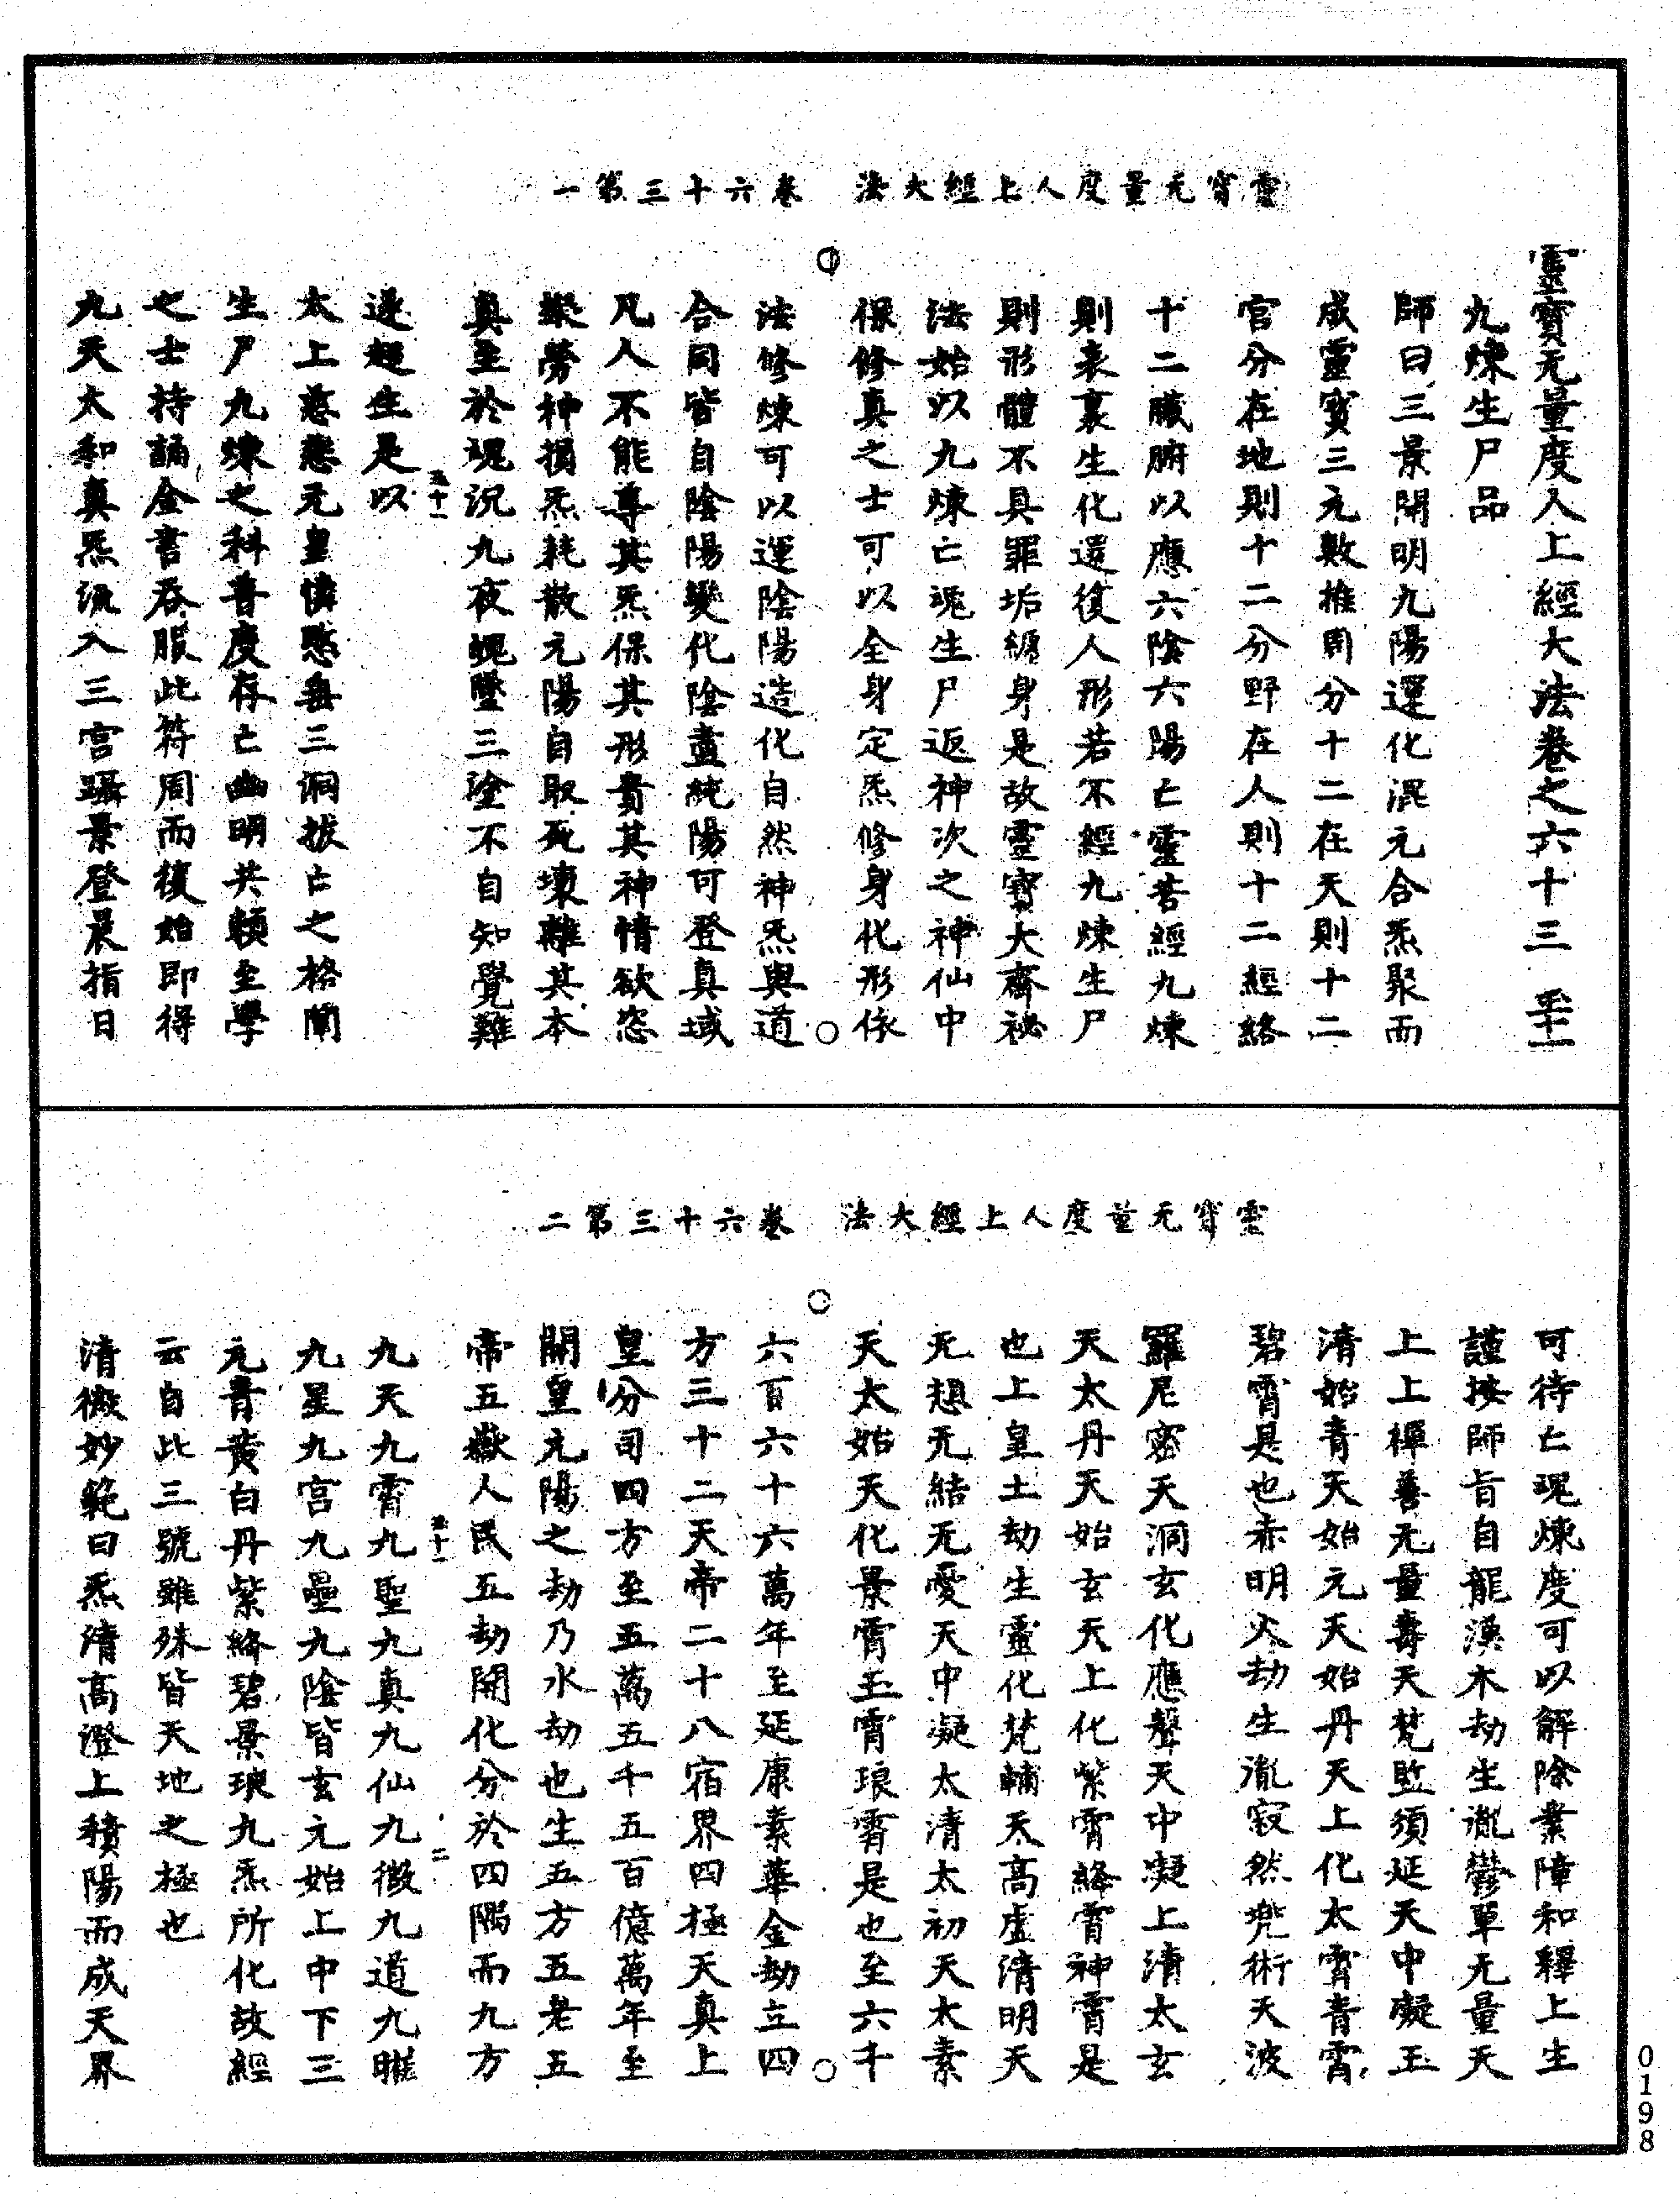 靈寶无量度人上經大法 卷六十三第一
靈寶无量度人上經大法卷之六十三 
九煉生尸品
師曰三景開明九陽運化混元合炁聚而
成靈寶三元數推周分十二在天則十二
官分在地則十二分野在人則十二經絡
十二臟腑以應六陰六陽亡靈若經九煉
則表裏生化還復人形若不經九煉生尸
則形體不具罪垢纏身是故靈寶大齋祕
法始以九煉亡魂生尸返神次之神仙中
保修真之士可以全身定炁修身化形依
法修煉可以運陰陽造化自然神炁與道
合同皆自陰陽變化陰盡純陽可登真域
凡人不能尊其炁保其形貴其神情欲恣
縱勞神損炁耗散元陽自取死壞離其本
真至於魂沉九夜魄墜三塗不自知覺難
遂超生是以
太上慈悲元皇憐愍垂三洞拔亡之格闡
生尸九煉之科普度存亡幽明共賴至學
之士持誦金書吞服此符周而復始即得
九天太和真炁流入三宮躡景登晨指日
靈寶无量度人上經大法 卷六十三第二
可待亡魂煉度可以解除業障和釋上生
謹按師旨自龍漢木劫生胤鬱單无量天
上上禪善无量壽天梵監須延天中凝玉
清始青天始元天始丹天上化太霄青霄
碧霄是也赤明火劫生胤寂然兜術天波
羅尼密天洞玄化應聲天中凝上清太玄
天太丹天始玄天上化紫霄絳霄神霄是
也上皇土劫生靈化梵輔天高虛清明天
无想无結无愛天中凝太清太初天太素
天太始天化景霄玉霄琅霄是也至六千
六百六十六萬年至延康素華金劫立四
方三十二天帝二十八宿界四極天真上
皇分司四方至五萬五千五百億萬年至
開皇元陽之劫乃水劫也生五方五老五
帝五嶽人民五劫開化分於四隅而九方
九天九霄九聖九真九仙九微九道九
九星九宮九壘九陰皆玄元始上中下三
元青黃白丹紫絳碧景琅九炁所化故經
云自此三號雖殊皆天地之極也
清微妙範曰炁清高澄上積陽而成天界
0198